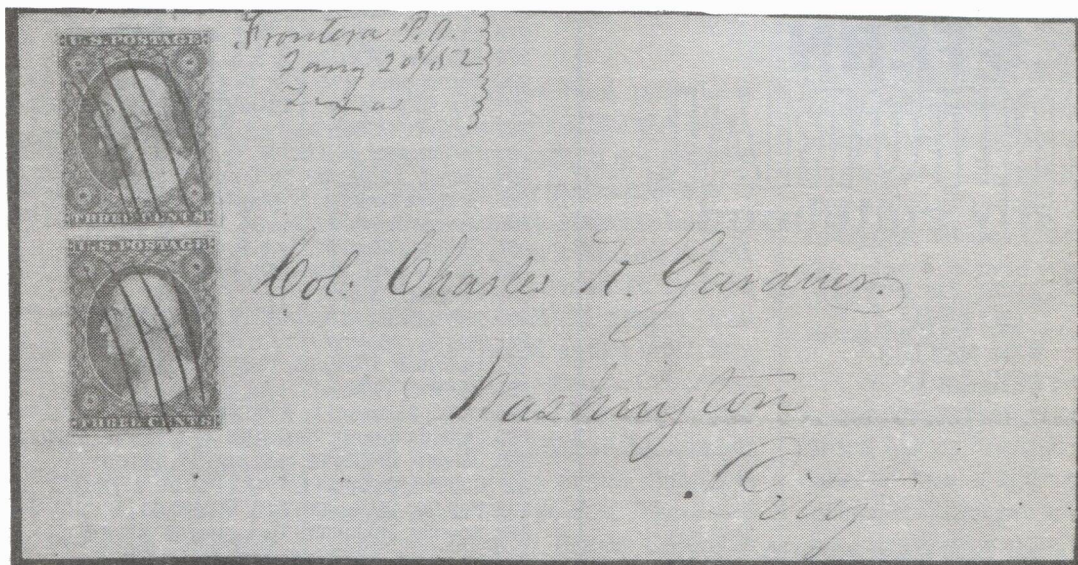 U.S. POSTAGE
THREE CENTS
U.S. POSTAGE
THREE CENTS
Frontera P.O.
Jany 20th/52
Texas
Col. Charles K. Gardner.
Washington
City